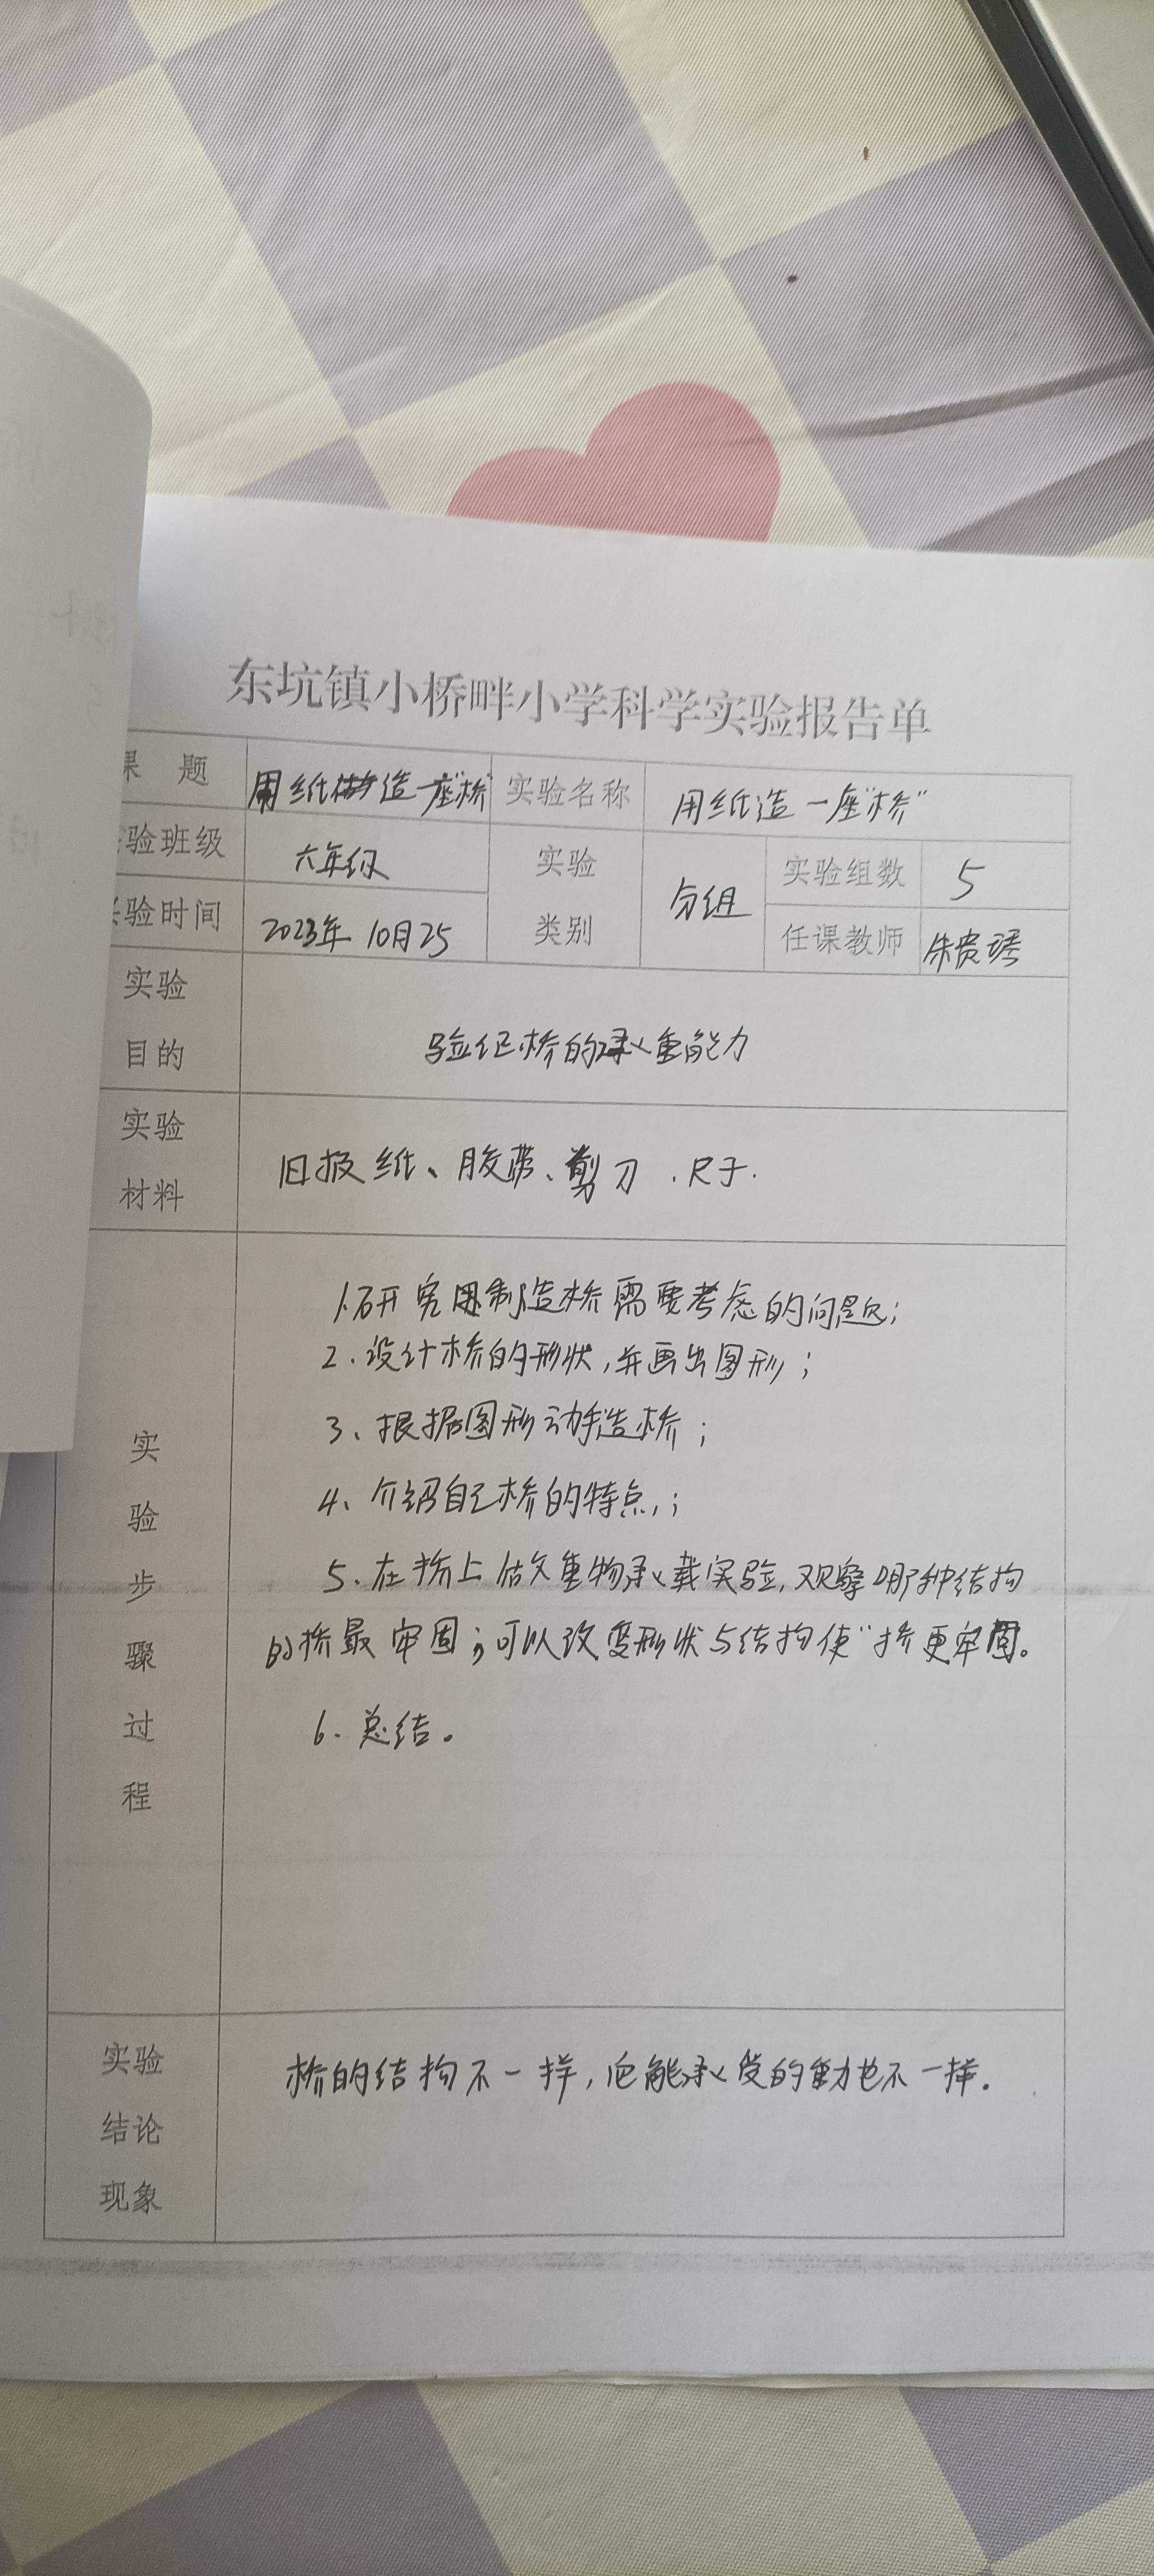 东坑镇小桥畔小学科学实验报告单
课 题 用纸造一座"桥" 实验名称 用纸造一座"桥"
验班级 六年级 实验 类别 分组 实验组数 5
验时间 2023年10月25 任课教师 朱贵
实验
目的
验证桥的承重能力
实验
材料
旧报纸、胶带、剪刀.尺子.
实验步骤过程
1.研究用制造桥需要考虑的问题;
2.设计桥的形状,并画出图形;
3、根据图形动手造桥;
4、介绍自己桥的特点,;
5.在桥上做重物承载实验,观察哪种结构
的桥最牢固;可以改变形状与结构使"桥更牢固。
6.总结。
实验
结论
现象
桥的结构不一样,它能承受的重力也不一样.